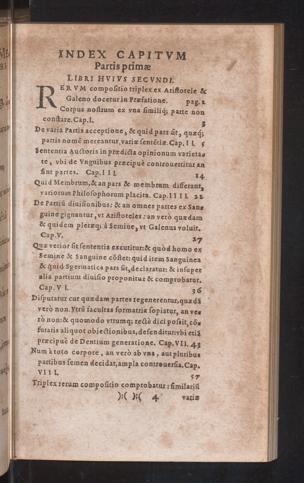 INDEX CAPITVM
Partis primæ
LIBRI HVIVS SECVNDI.
RERVM compositio triplex ex Aristotele &
Galeno docetur in Præfatione. pag. 1
Corpus nostrum ex vna simili; parte non
constare. Cap. I. 3
De varia Partis acceptione, & quid pars sit, quæq;
partis nomē mereantur, variæ sentētiæ. Cap. II. 5
Sententia Auctoris in prædicta opinionum varieta-
te, vbi de Vnguibus præcipuè controuertitur an
sint partes. Cap. III 14
Quid Membrum, & an pars & membrum differant,
variorum Philosophorum placita. Cap. IIII. 22
De Partiū diuisionibus: & an omnes partes ex San-
guine gignantur, vt Aristoteles: an verò quædam
& quidem pleræq; à Semine, vt Galenus voluit.
Cap. V. 27
Quæ verior sit sententia excutitur: & quòd homo ex
Semine & Sanguine cōstet: quid item Sanguinea
& quid Spermatica pars sit, declaratur: & insuper
alia partium diuisio proponitur & comprobatur.
Cap. VI. 36
Disputatur cur quædam partes regenerentur, quædā
verò non. Vtrū facultas formatrix sopiatur, an ve-
rò non: & quomodo vtrumq; rectè dici possit, cō-
futatis aliquot obiectionibus, defenditur: vbi etiā
præcipuè de Dentium generatione. Cap. VII. 43
Num à toto corpore, an verò ab vna, aut pluribus
partibus semen decidat, ampla controuersia. Cap.
VIII. 57
Triplex rerum compositio comprobatur: similariū
):( ):( 4 variæ